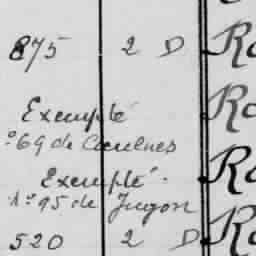 875 2 D Ro
Exempté Ro
º69 de Caulnes
Exempté. Ro
Nº 95 de Jugon
520 2 D Ro